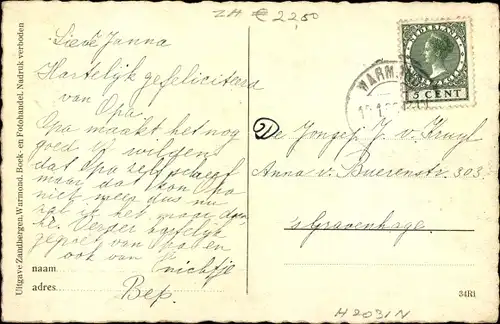 ZH € 22,50
Lieve Janna
Hartelijk gefeliciteerd
van Opa
Opa maakt het nog
goed
dat Opa zelf schreef
maar dat kon Opa
niet meer dus nu
het maar doen
Verder hartelijk
gegroet van Opa en
ook van nichtje
Bep.
naam
adres
Uitgave Zandbergen, Warmond. Boek- en Fotohandel. Nadruk verboden
WARMOND
NEDERLAND
5 CENT
De Jongej J. v. Kruyl
Anna v. Buerenstr 303
's Gravenhage.
34R1
H2031N